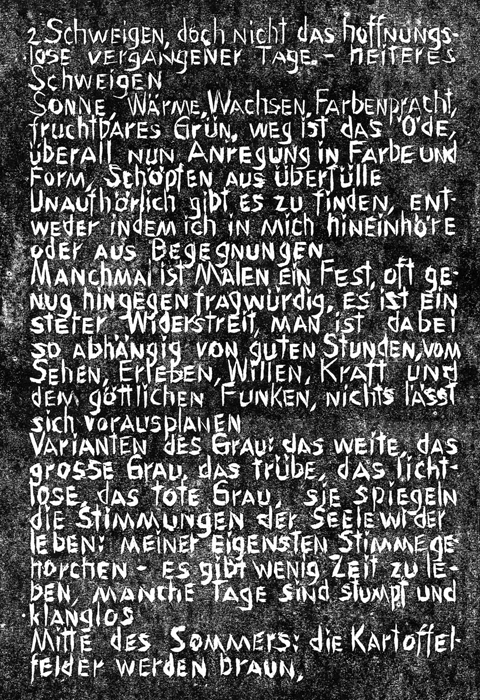 2 Schweigen, doch nicht das hoffnungs-
lose vergangener Tage. - heiteres
Schweigen
Sonne, Wärme, Wachsen, Farbenpracht,
fruchtbares Grün, weg ist das Öde,
überall nun Anregung in Farbe und
Form, Schöpfen aus überfülle
Unaufhörlich gibt es zu finden, ent-
weder indem ich in mich hineinhöre
oder aus Begegnungen
Manchmal ist Malen ein Fest, oft ge-
nug hingegen fragwürdig, es ist ein
steter Widerstreit, man ist dabei
so abhängig von guten Stunden, vom
Sehen, Erleben, Willen, Kraft und
dem göttlichen Funken, nichts lässt
sich vorausplanen
Varianten des Grau: das weite, das
grosse Grau, das trübe, das licht-
lose, das tote Grau, sie spiegeln
die Stimmungen der Seele wider
leben: meiner eigensten Stimme ge-
horchen - es gibt wenig Zeit zu le-
ben, manche Tage sind stumpf und
klanglos
Mitte des Sommers: die Kartoffel-
felder werden braun,